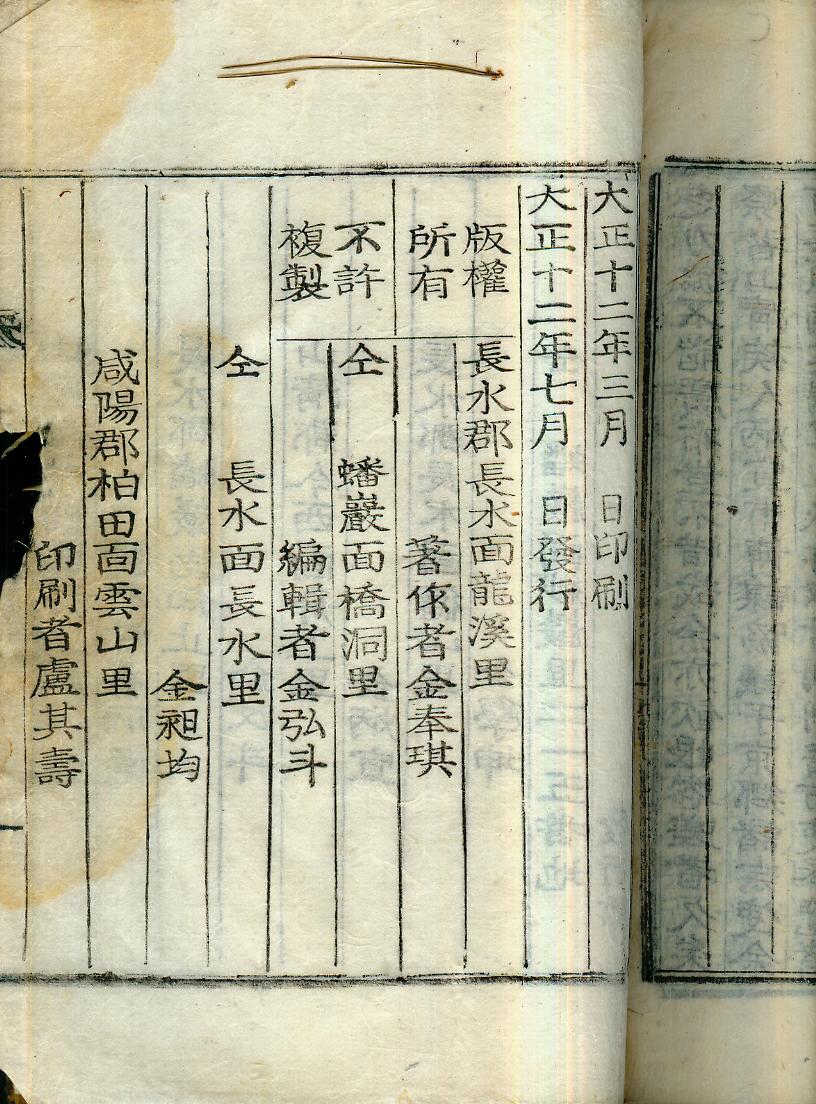 大正十二年三月 日印刷
大正十二年七月 日發行
版權
所有
不許
複製
長水郡長水面龍溪里
著作者金奉琪
仝 蟠巖面橋洞里
編輯者金弘斗
仝 長水面長水里
金昶均
咸陽郡柏田面雲山里
印刷者盧其壽